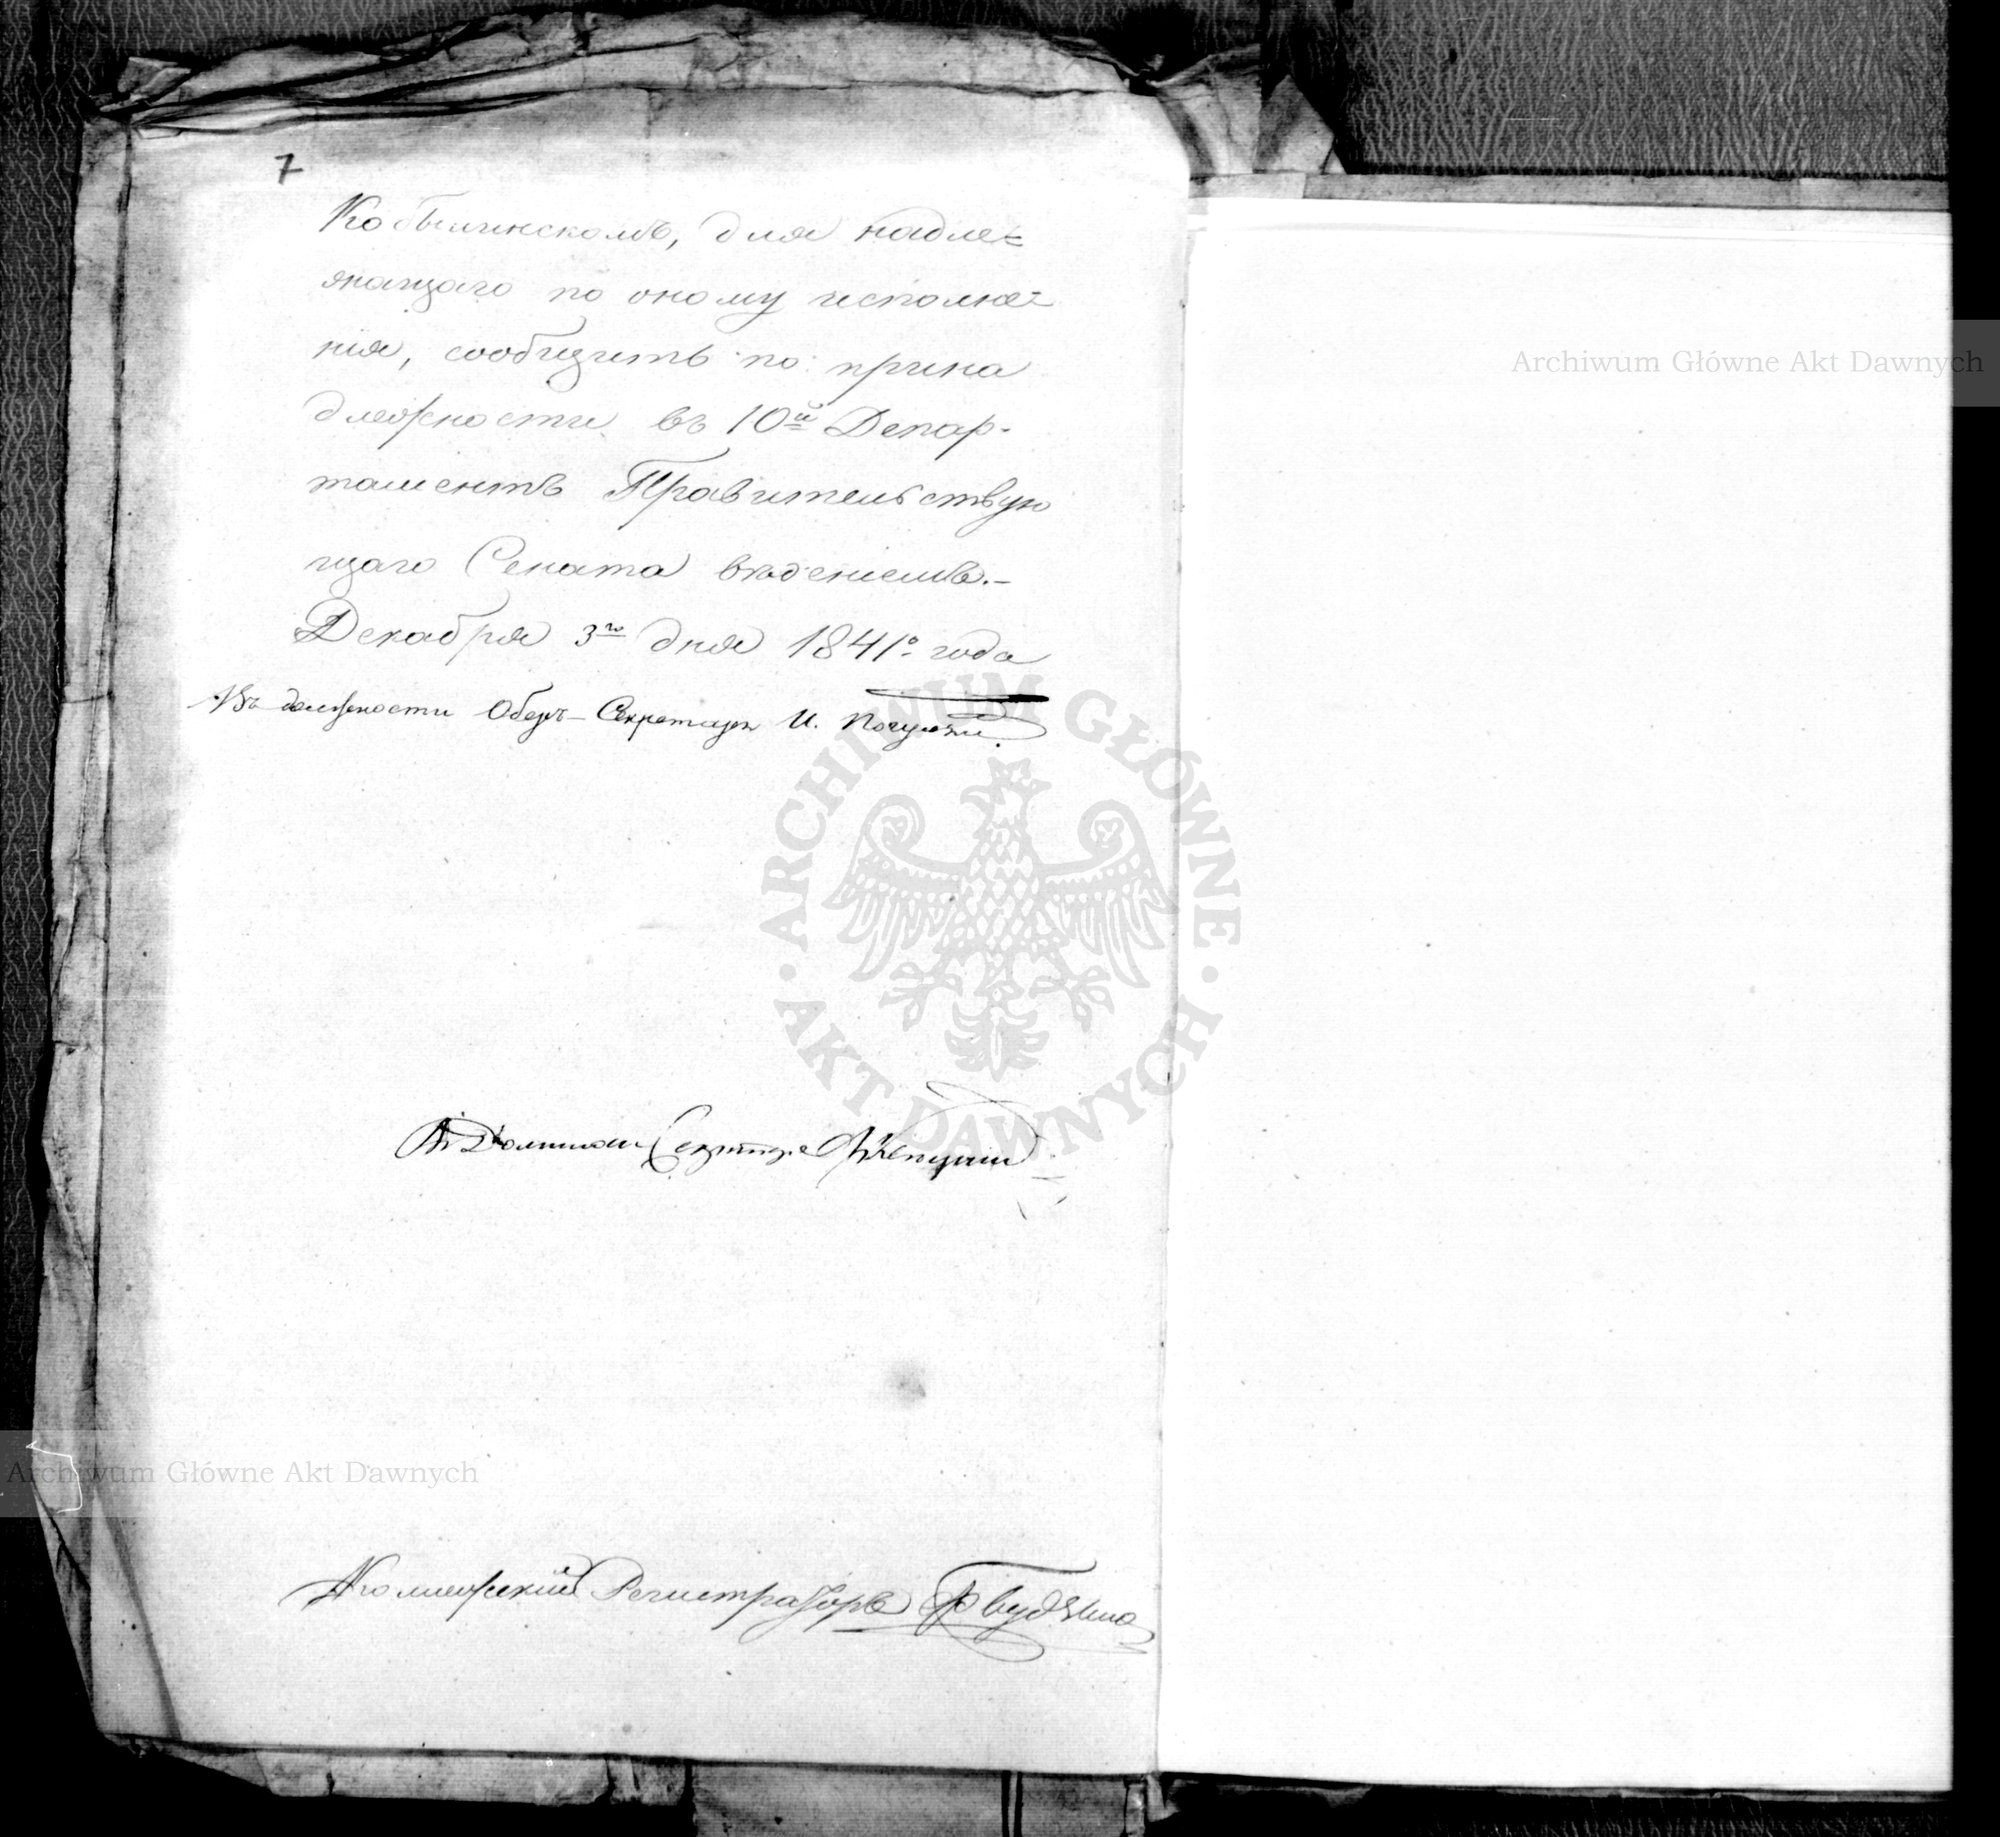 7
Кобылинскомъ, для надле=
жащаго по оному исполне=
нія, сообщить по прина
длежности въ 10й Депар-
таментъ Правительствую
щаго Сената вѣденіемъ.-
Декабря 3го дня 1841о. года
Въ должности Оберъ-Секретаря И.
Въ Должности Секретаря
Коллежскій Регистраторъ
ARCHIWUM GŁÓWNE • AKT DAWNYCH •
Archiwum Główne Akt Dawnych
Archiwum Główne Akt Dawnych